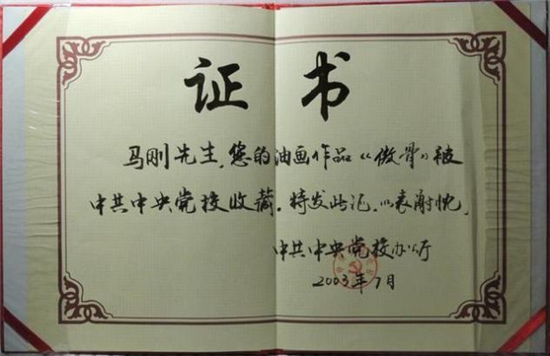 证书
马刚先生，您的油画作品《傲骨》被
中共中央党校收藏。特发此证，以表谢忱。
中共中央党校办公厅
2003年7月